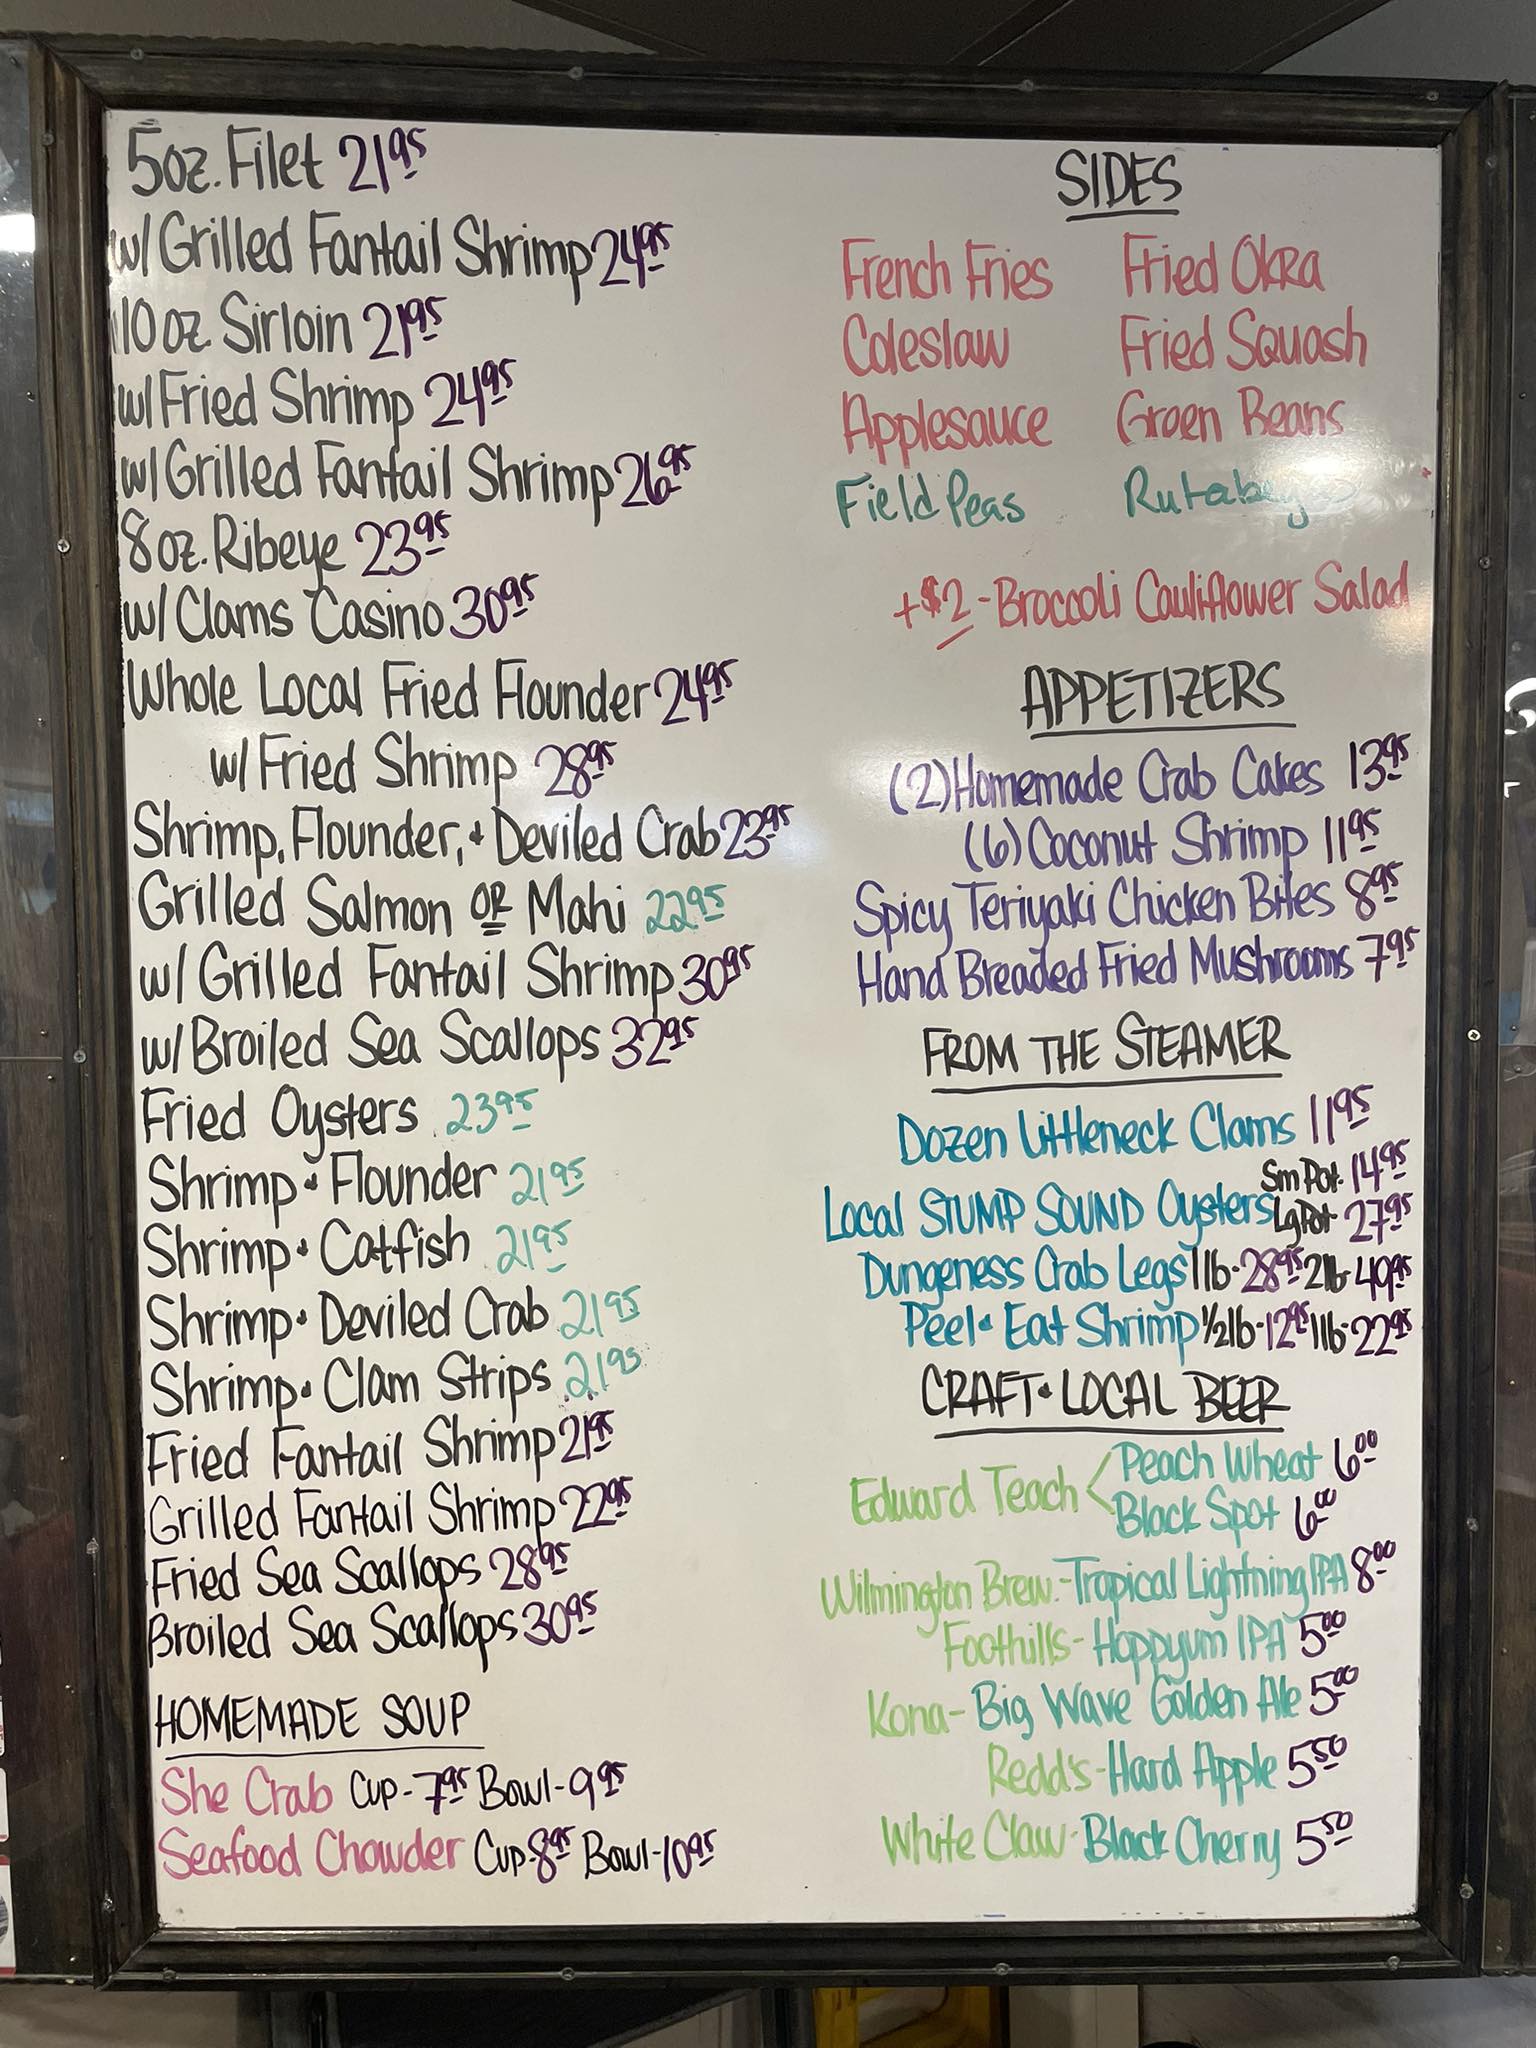 5oz. Filet 21.95
w/ Grilled Fantail Shrimp 24.95
10 oz. Sirloin 21.95
w/ Fried Shrimp 24.95
w/ Grilled Fantail Shrimp 26.95
8 oz. Ribeye 23.95
w/ Clams Casino 30.95
Whole Local Fried Flounder 24.95
w/ Fried Shrimp 28.95
Shrimp, Flounder, + Deviled Crab 23.95
Grilled Salmon OR Mahi 22.95
w/ Grilled Fantail Shrimp 30.95
w/ Broiled Sea Scallops 32.95
Fried Oysters 23.95
Shrimp + Flounder 21.95
Shrimp + Catfish 21.95
Shrimp + Deviled Crab 21.95
Shrimp + Clam Strips 21.95
Fried Fantail Shrimp 21.95
Grilled Fantail Shrimp 22.95
Fried Sea Scallops 28.95
Broiled Sea Scallops 30.95
HOMEMADE SOUP
She Crab Cup - 7.95 Bowl - 9.95
Seafood Chowder Cup - 8.95 Bowl - 10.95
SIDES
French Fries Fried Okra
Coleslaw Fried Squash
Applesauce Green Beans
Field Peas
+$2 - Broccoli Cauliflower Salad
APPETIZERS
(2) Homemade Crab Cakes 13.95
(6) Coconut Shrimp 11.95
Spicy Teriyaki Chicken Bites 8.95
Hand Breaded Fried Mushrooms 7.95
FROM THE STEAMER
Dozen Littleneck Clams 11.95
Sm Pot - 14.95
Local STUMP SOUND Oysters Lg Pot - 27.95
Dungeness Crab Legs 1 lb - 28.95 2 lb - 49.95
Peel + Eat Shrimp 1/2 lb - 12.95 1 lb - 22.95
CRAFT + LOCAL BEER
Edward Teach < Peach Wheat 6.00
Black Spot 6.00
Wilmington Brew. - Tropical Lightning IPA 8.00
Foothills - Hoppyum IPA 5.00
Kona - Big Wave Golden Ale 5.00
Redd's - Hard Apple 5.50
White Claw - Black Cherry 5.50